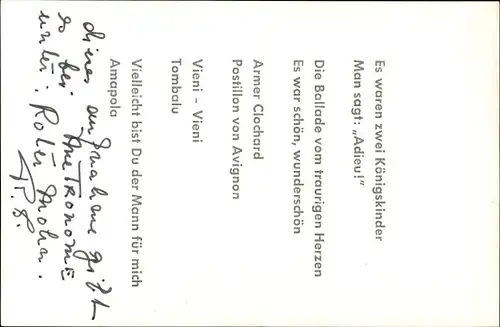 Es waren zwei Königskinder
Man sagt: „Adieu!"
Die Ballade vom traurigen Herzen
Es war schön, wunderschön
Armer Clochard
Postillon von Avignon
Vieni - Vieni
Tombalu
Vielleicht bist Du der Mann für mich
Amapola
dieses aufgnahme gibt
es bei METRONOME
unter: Roter Mohn.
P. B.